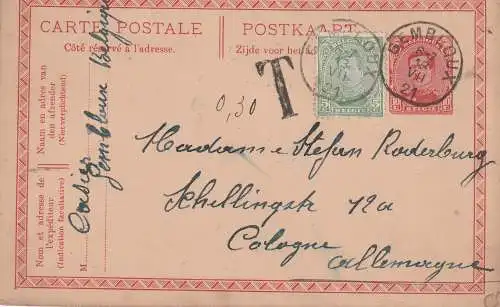 CARTE POSTALE
POSTKAART
Côté réservé à l'adresse.
Zijde voor het
GEMBLOUX
VII
21
GEMBLOUX
VII
21
T
0,30
Naam en adres van
den afzender
(Niet verplichtend)
Nom et adresse de
l'expéditeur
(Indication facultative)
M
Gembloux Belgique
Madame Stefan Roderburg
Schillingstr 12a
Cologne
Allemagne